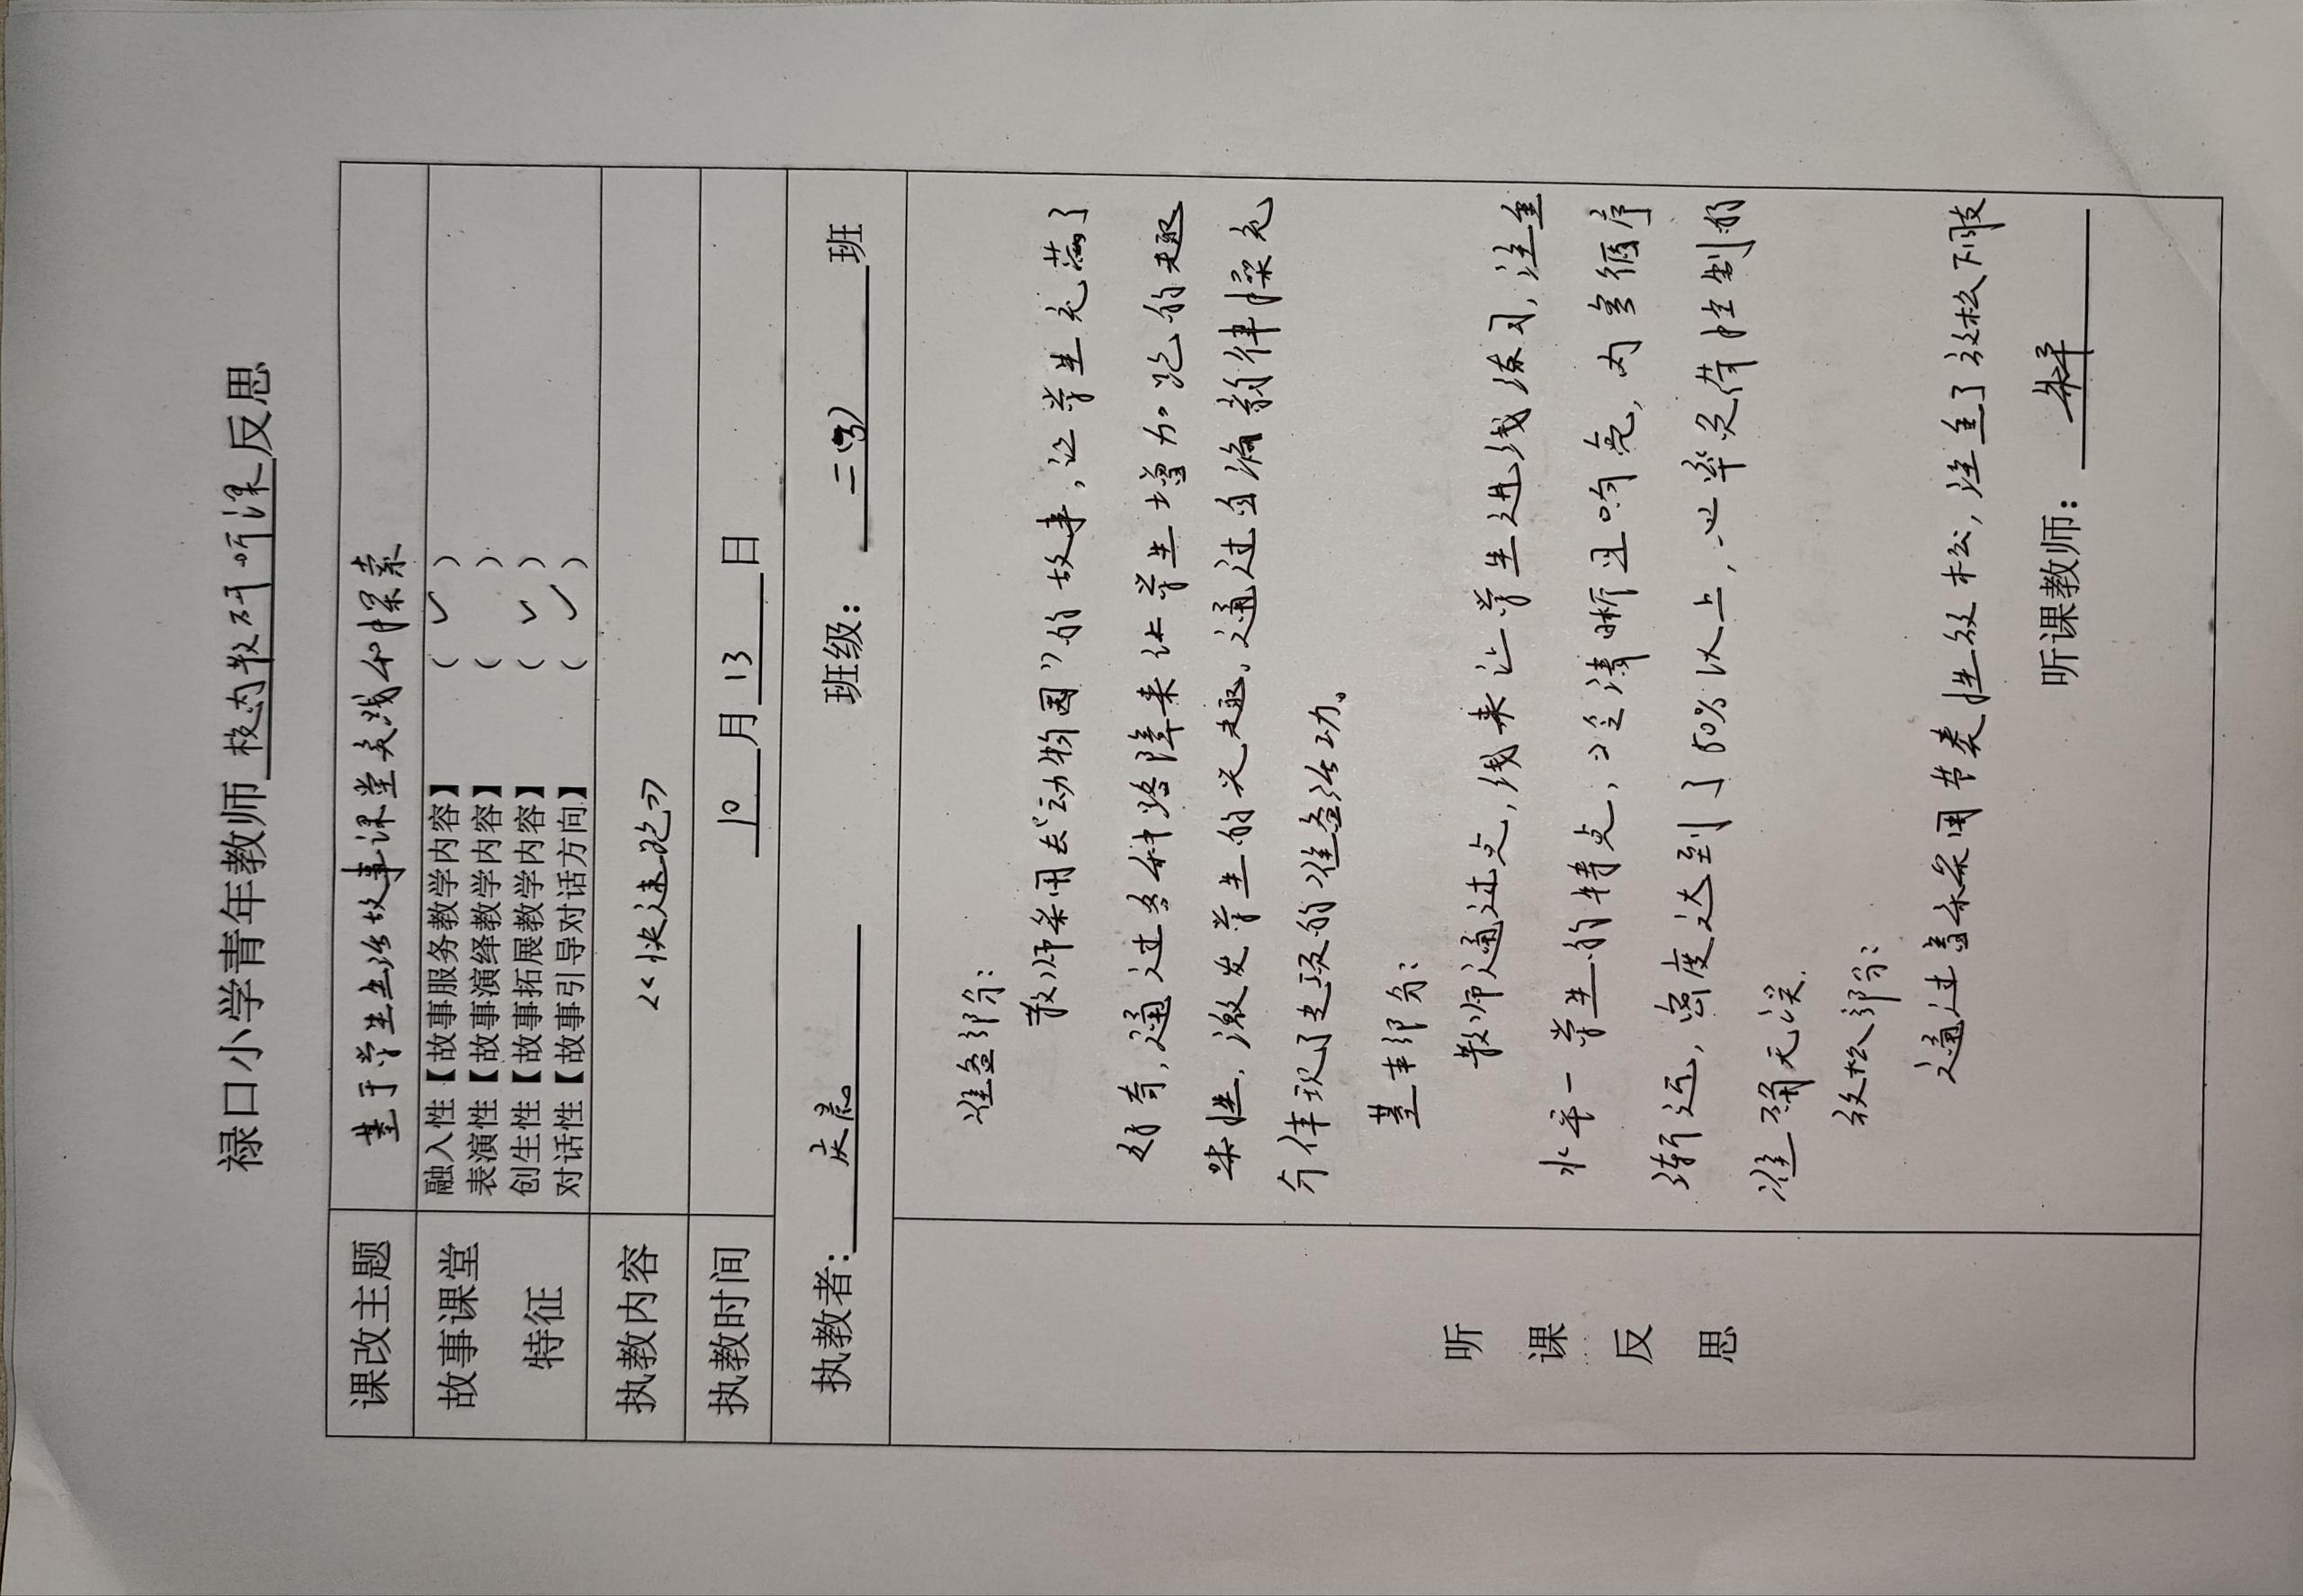 禄口小学青年教师校内教研听课反思
课改主题 基于学生生活故事课堂实践和探索
故事课堂特征
融入性【故事服务教学内容】 （ ✓ ）
表演性【故事演绎教学内容】 （ ）
创生性【故事拓展教学内容】 （ ✓ ）
对话性【故事引导对话方向】 （ ✓ ）
执教内容 《快速跑》
执教时间 10月13日
执教者: 庆晨 班级： 二(3) 班
听课反思
准备部分：
教师采用去“动物园”的故事，让学生充满了
好奇，通过各种路障来让学生增加跑的趣
味性，激发学生的兴趣。通过自编韵律操充
分体现了专项的准备活动。
基本部分：
教师通过点，线来让学生进线练习，注重
水平一学生的特点，口令清晰且响亮，内容循序
渐近，密度达到了50%以上，心率负荷控制的
准确无误.
放松部分：
通过音乐采用节奏性放松，注重了放松下肢
听课教师：